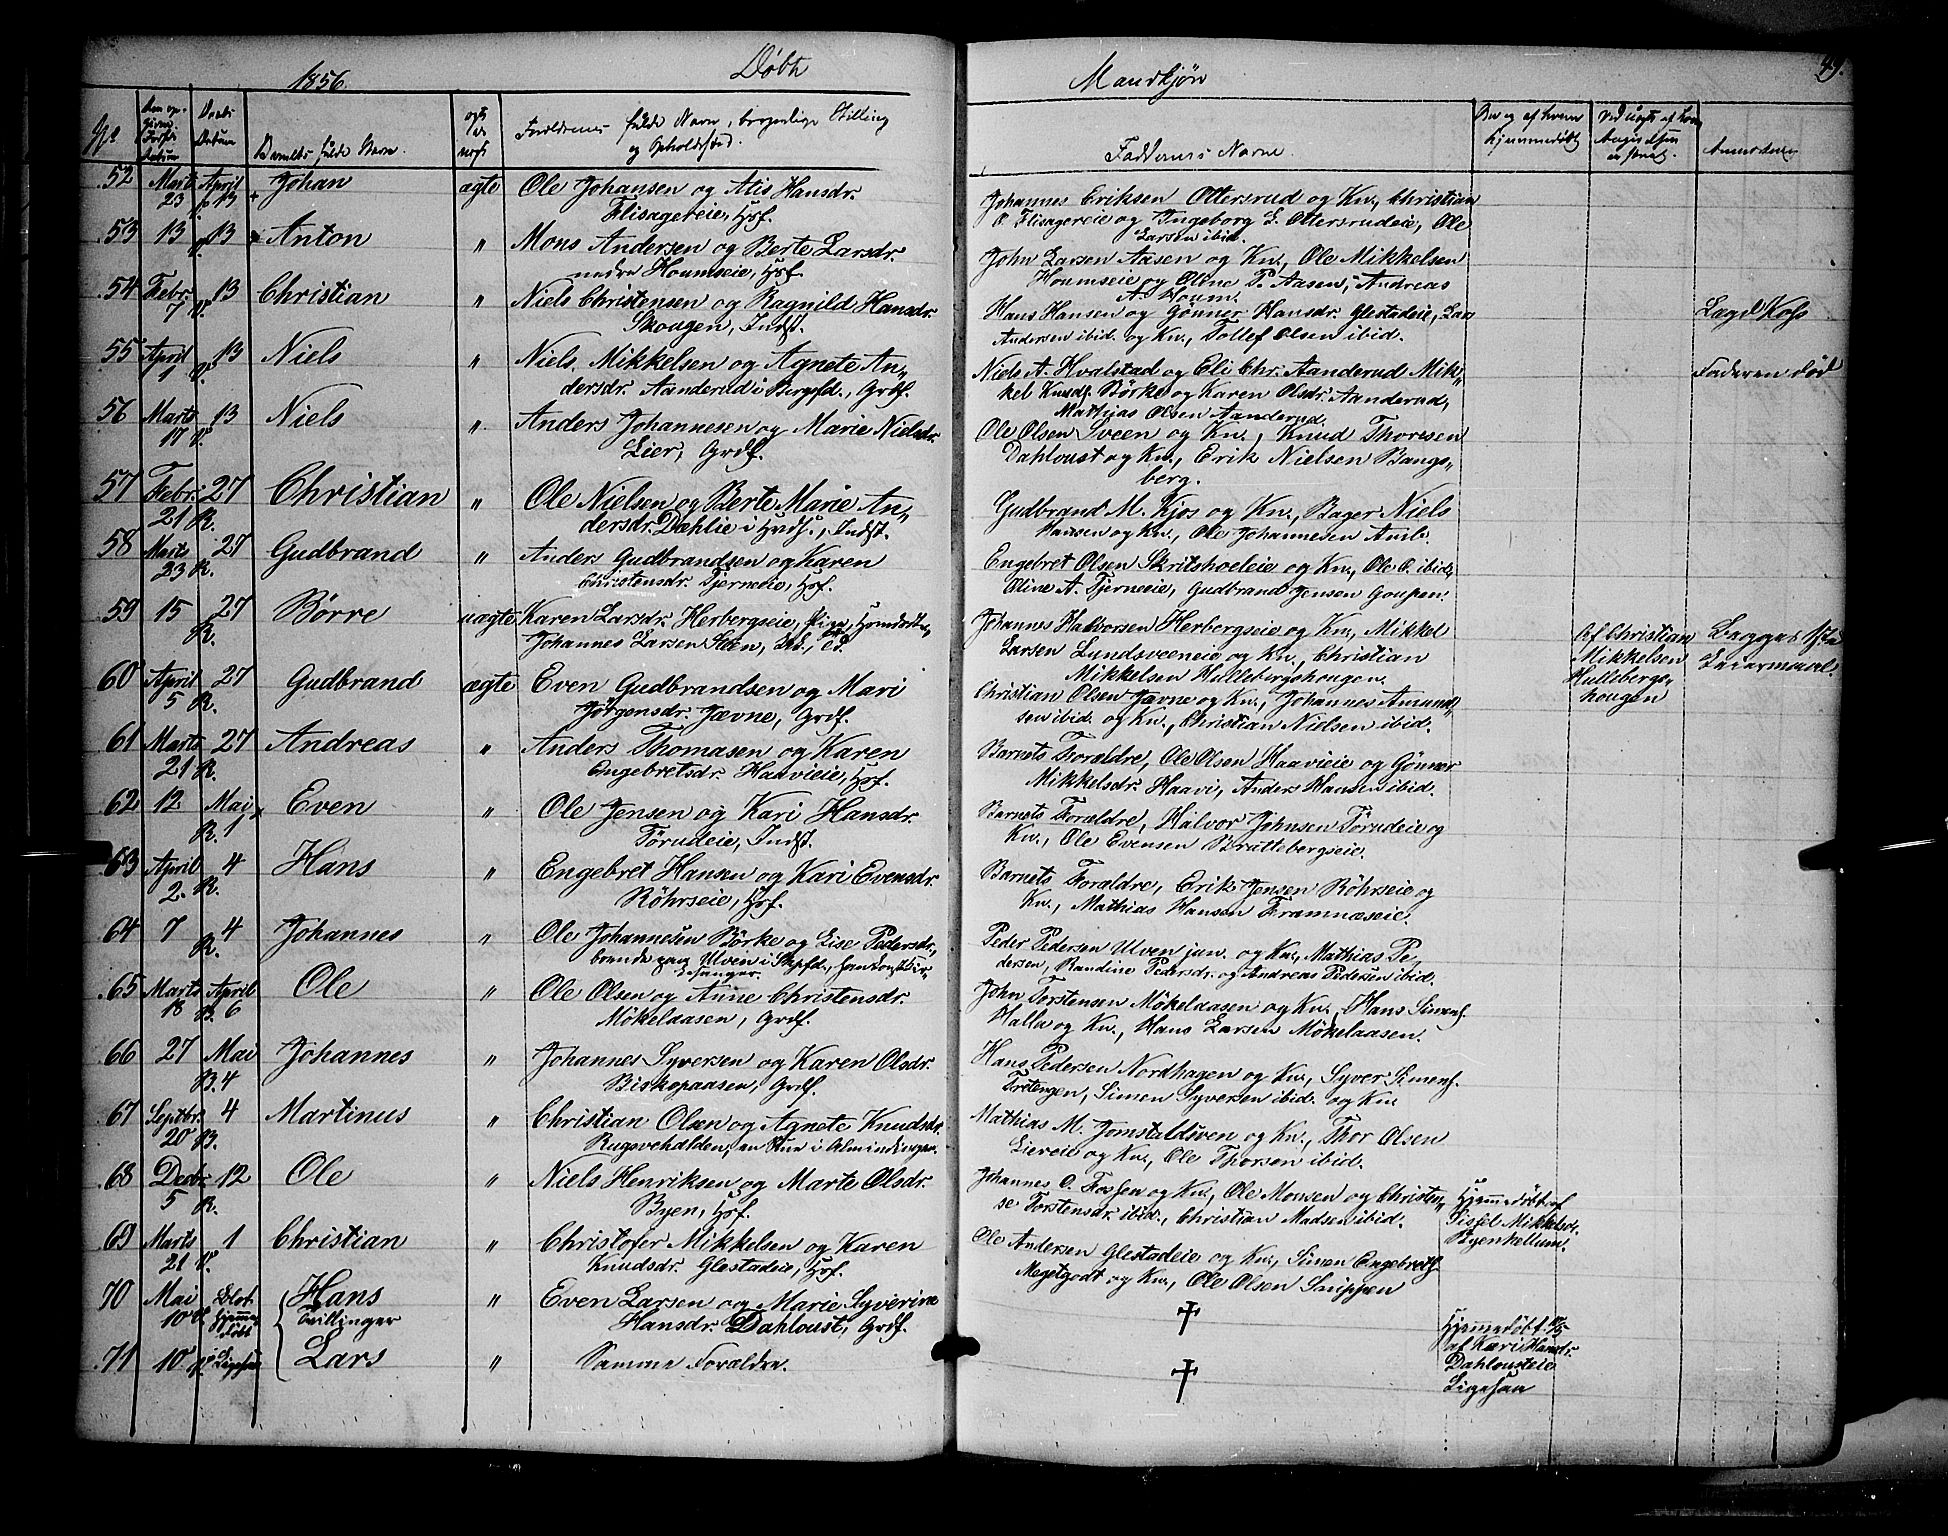 1856.
Døbte
Mandkjøn
49.
No
Barnets fulde Navn.
Forældrenes fulde Navn, borgerlige Stilling
og Opholdsted.
Faddernes Navne.
52 Marts 23 April 13 Johan ægte Ole Johansen og Atis Hansdr.
Flisagereie, Hsf.
Johannes Eriksen Ottersrud og Kn., Christian
O. Flisagereie og Ingeborg L. Ottersrudeie, Ole
Larsen ibid.
53 13 V. 13 Anton " Mons Andersen og Berte Larsdr.
nedre Houmseie, Hsf.
John Larsen Aasen og Kn., Ole Mikkelsen
Houmseie og Oline P. Aasen, Andreas
A. Houm.
54 Febr. 7 V. 13 Christian " Niels Christensen og Ragnild Hansdr.
Skougen, Indst.
Hans Hansen og Gønner Hansdr. Glestadeie, Lars
Andersen ibid. og Kn., Tollef Olsen ibid.
55 April 1 V. 13 Niels " Niels Mikkelsen og Agnete An-
dersdr. Aanderud i Bergsfd., Grdf.
Niels A. Hvalstad og Eli Chr. Aanderud Mik-
kel Knuds. Börke og Karen Olsdr. Aanderud,
Mathias Olsen Aanderud.
Faderen död
56 Marts 17 V. 13 Niels " Anders Johannesen og Marie Nielsdr.
Lier, Grdf.
Ole Olsen Sveen og Kn., Knud Thoresen
Dahloust og Kn., Erik Nielsen Bangs-
berg.
57 Febr. 21 R. 27 Christian " Ole Nielsen og Berte Marie An-
dersdr. Dæhlie i Hvds., Indst.
Gudbrand M. Kjos og Kn., Bager Niels
Hansen og Kn., Ole Johannesen
58 Marts 23 R. 27 Gudbrand " Anders Gudbrandsen og Karen
Christensdr. Tjerneie, Hsf.
Engebret Olsen Skritsholeie og Kn., Ole O. ibid.
Eline A. Tjerneie, Gudbrand Jensen Goupen.
59 15 R. 27 Børre uægte Karen Larsdr. Herbergseie, Pige,
Johannes Larsen Steen,
Johannes Halvorsen Herbergseie og Kn., Mikkel
Larsen Lundsveeneie og Kn., Christian
Mikkelsen Hullebergshougen.
Af Christian
Mikkelsen
Hullebergs-
hougen
Begges 1ste
Leiermaal.
60 April 5 R. 27 Gudbrand ægte Even Gudbrandsen og Mari
Jørgensdr. Jævne, Grdf.
Christian Olsen Jævne og Kn., Johannes Amund-
sen ibid. og Kn., Christian Nielsen ibid.
61 Marts 21 R. 27 Andreas " Anders Thomasen og Karen
Engebretsdr. Haavieie, Hsf.
Barnets Forældre, Ole Olsen Haavieie og Gønner
Mikkelsdr. Haavi, Anders Hansen ibid.
62 12 Mai R. 1 Even " Ole Jensen og Kari Hansdr.
Törudeie, Indst.
Barnets Forældre, Halvor Johnsen Törudeie og
Kn., Ole Evensen Brattebergseie.
63 April 2. R. 4 Hans " Engebret Hansen og Kari Evensdr.
Röhrseie, Hsf.
Barnets Forældre, Erik Jensen Röhrseie og
Kn., Mathias Hansen Framnæseie.
64 7 R. 4 Johannes " Ole Johannesen Börke og Lise Pedersdr.,
Ulven i
Peder Pedersen Ulven jun. og Kn., Mathias Pe-
dersen, Randine Pedersdr. og Andreas Pedersen ibid.
65 Marts 18 April B. 6 Ole " Ole Olsen og Anne Christensdr.
Mökelaasen, Grdf.
John Torstensen Mökelaasen og Kn., Hans Simens.
Halla og Kn., Hans Larsen Mökelaasen.
66 27 Mai B. 4 Johannes " Johannes Syversen og Karen Olsdr.
Biskopaasen, Grdf.
Hans Pedersen Nordhagen og Kn., Syver Simens.
Tretengen, Simen Syversen ibid. og Kn.
67 Septbr. 20 B. 4 Martinus " Christian Olsen og Agnete Knudsdr.
Rugsvehalden, en Stue i Almindingen.
Mathias M. Jomstaldsven og Kn., Thor Olsen
Liereie og Kn., Ole Thorsen ibid.
68 Decbr. 5 R. 12 Ole " Niels Henriksen og Marte Olsdr.
Byen, Hsf.
Johannes O. Fossen og Kn., Ole Monsen og Christen-
se Torstensdr. ibid., Christian Madsen ibid.
Hjemmedöbt af
Sissel Mikkelsd.
Byenkellum.
69 Marts 21 V. 1 Christian " Christofer Mikkelsen og Karen
Knudsdr. Glestadeie, Hsf.
Ole Andersen Glestadeie og Kn., Simen Engebreths.
Megetgodt og Kn., Ole Olsen Snippen
70 Mai 10 Blot hjemmedöbt Hans Tvillinger " Even Larsen og Marie Syverine
Hansdr. Dahloust, Grdf.
†
Hjemmedöbt
af Kari Hansdr.
Dahlousteie
71 10 Ligesaa Lars " Samme Forældre.
†
Ligesaa